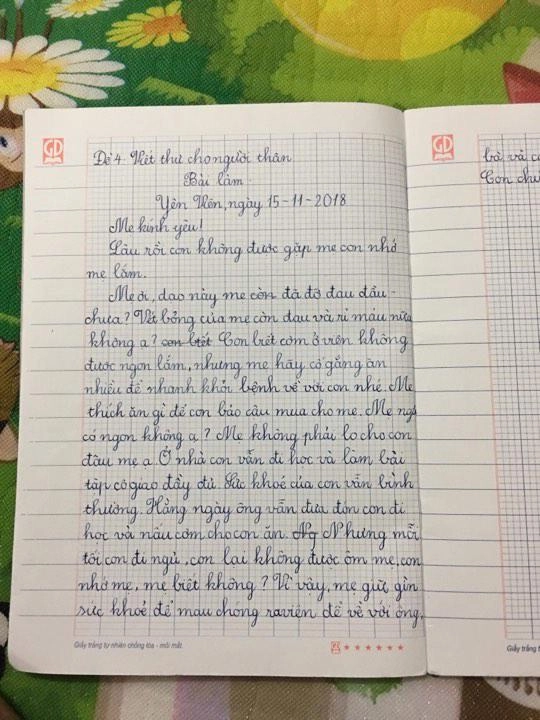 GD
Đề 4. Viết thư cho người thân
Bài làm.
Yên Viên, ngày 15-11-2018
Mẹ kính yêu!
Lâu rồi con không được gặp mẹ con nhớ
mẹ lắm.
Mẹ ơi, dạo này mẹ còn đã đỡ đau đầu
chưa? Vết bỏng của mẹ còn đau và rỉ máu nữa
không ạ? con biết Con biết cơm ở viện không
được ngon lắm, nhưng mẹ hãy cố gắng ăn
nhiều để nhanh khỏi bệnh về với con nhé. Mẹ
thích ăn gì để con bảo cậu mua cho mẹ. Mẹ ngủ
có ngon không ạ? Mẹ không phải lo cho con
đâu mẹ ạ. Ở nhà con vẫn đi học và làm bài
tập cô giao đầy đủ. Sức khoẻ của con vẫn bình
thường. Hằng ngày ông vẫn đưa đón con đi
học và nấu cơm cho con ăn. Ng Nhưng mỗi
tối con đi ngủ, con lại không được ôm mẹ, con
nhớ mẹ, mẹ biết không? Vì vậy, mẹ giữ gìn
sức khoẻ để mau chóng ra viện để về với ông,
Giấy trắng tự nhiên chống lóa - mỏi mắt
GD
bà và c
Con chú
Giấy trắng t